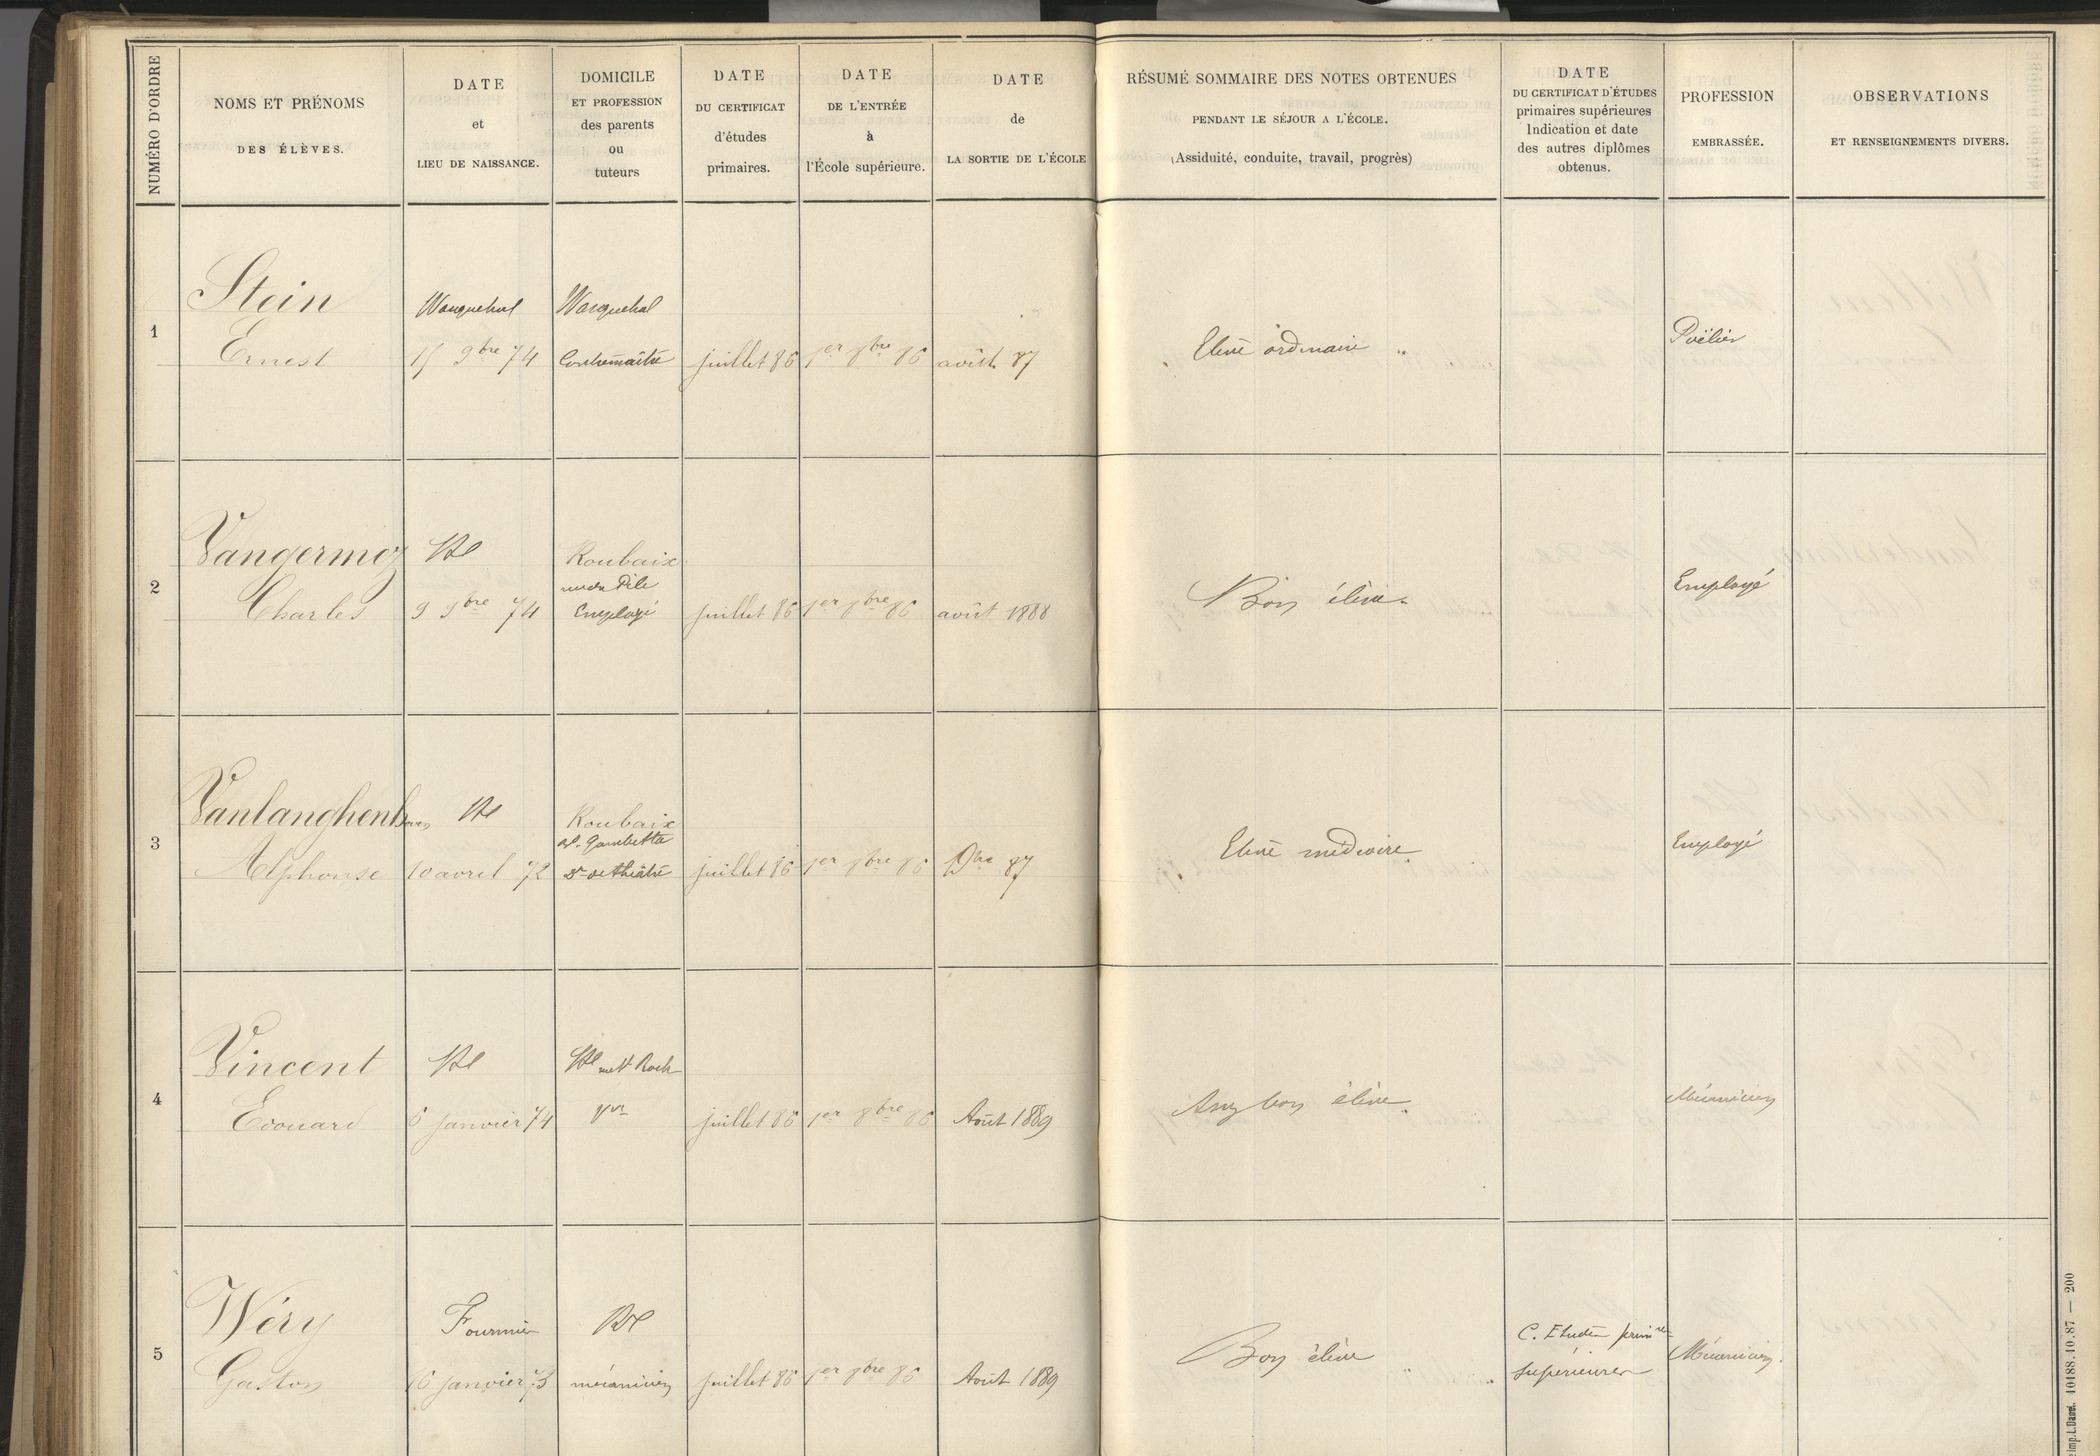 NUMÉRO D'ORDRE
NOMS ET PRÉNOMS
DES ÉLÈVES.
DATE
et
LIEU DE NAISSANCE.
DOMICILE
ET PROFESSION
des parents
ou
tuteurs
DATE
DU CERTIFICAT
d'études
primaires.
DATE
DE L'ENTRÉE
à
l'École supérieure.
DATE
de
LA SORTIE DE L'ÉCOLE
RÉSUMÉ SOMMAIRE DES NOTES OBTENUES
PENDANT LE SÉJOUR A L'ÉCOLE.
(Assiduité, conduite, travail, progrès)
DATE
DU CERTIFICAT D'ÉTUDES
primaires supérieures
Indication et date
des autres diplômes
obtenus.
PROFESSION
EMBRASSÉE.
OBSERVATIONS
ET RENSEIGNEMENTS DIVERS.
1
Stein
Ernest
Wasquehal
15 9bre 74
Wasquehal
Contremaître
juillet 86
1er 8bre 86
août 87
Elève ordinaire
Poëlier
2
Vangermez
Charles
Rx
9 9bre 74
Roubaix
Pile
Employé
juillet 86
1er 8bre 86
août 1888
Bon élève.
Employé
3
Vanlanghenhoven
Alphonse
Rx
10 avril 72
Roubaix
Gambetta
de théâtre
juillet 86
1er 8bre 86
9bre 87
Elève médiocre.
Employé
4
Vincent
Edouard
Rx
6 janvier 74
Rx rue St Roch
juillet 86
1er 8bre 86
Août 1889
Assez bon élève.
Mécanicien
5
Wéry
Gaston
Fourmies
16 janvier 73
Rx
mécanicien
juillet 86
1er 8bre 86
Août 1889
Bon élève
C. Etudes primres
supérieures
Mécanicien.
Imp. L. Danel. 10188.10.87 — 200